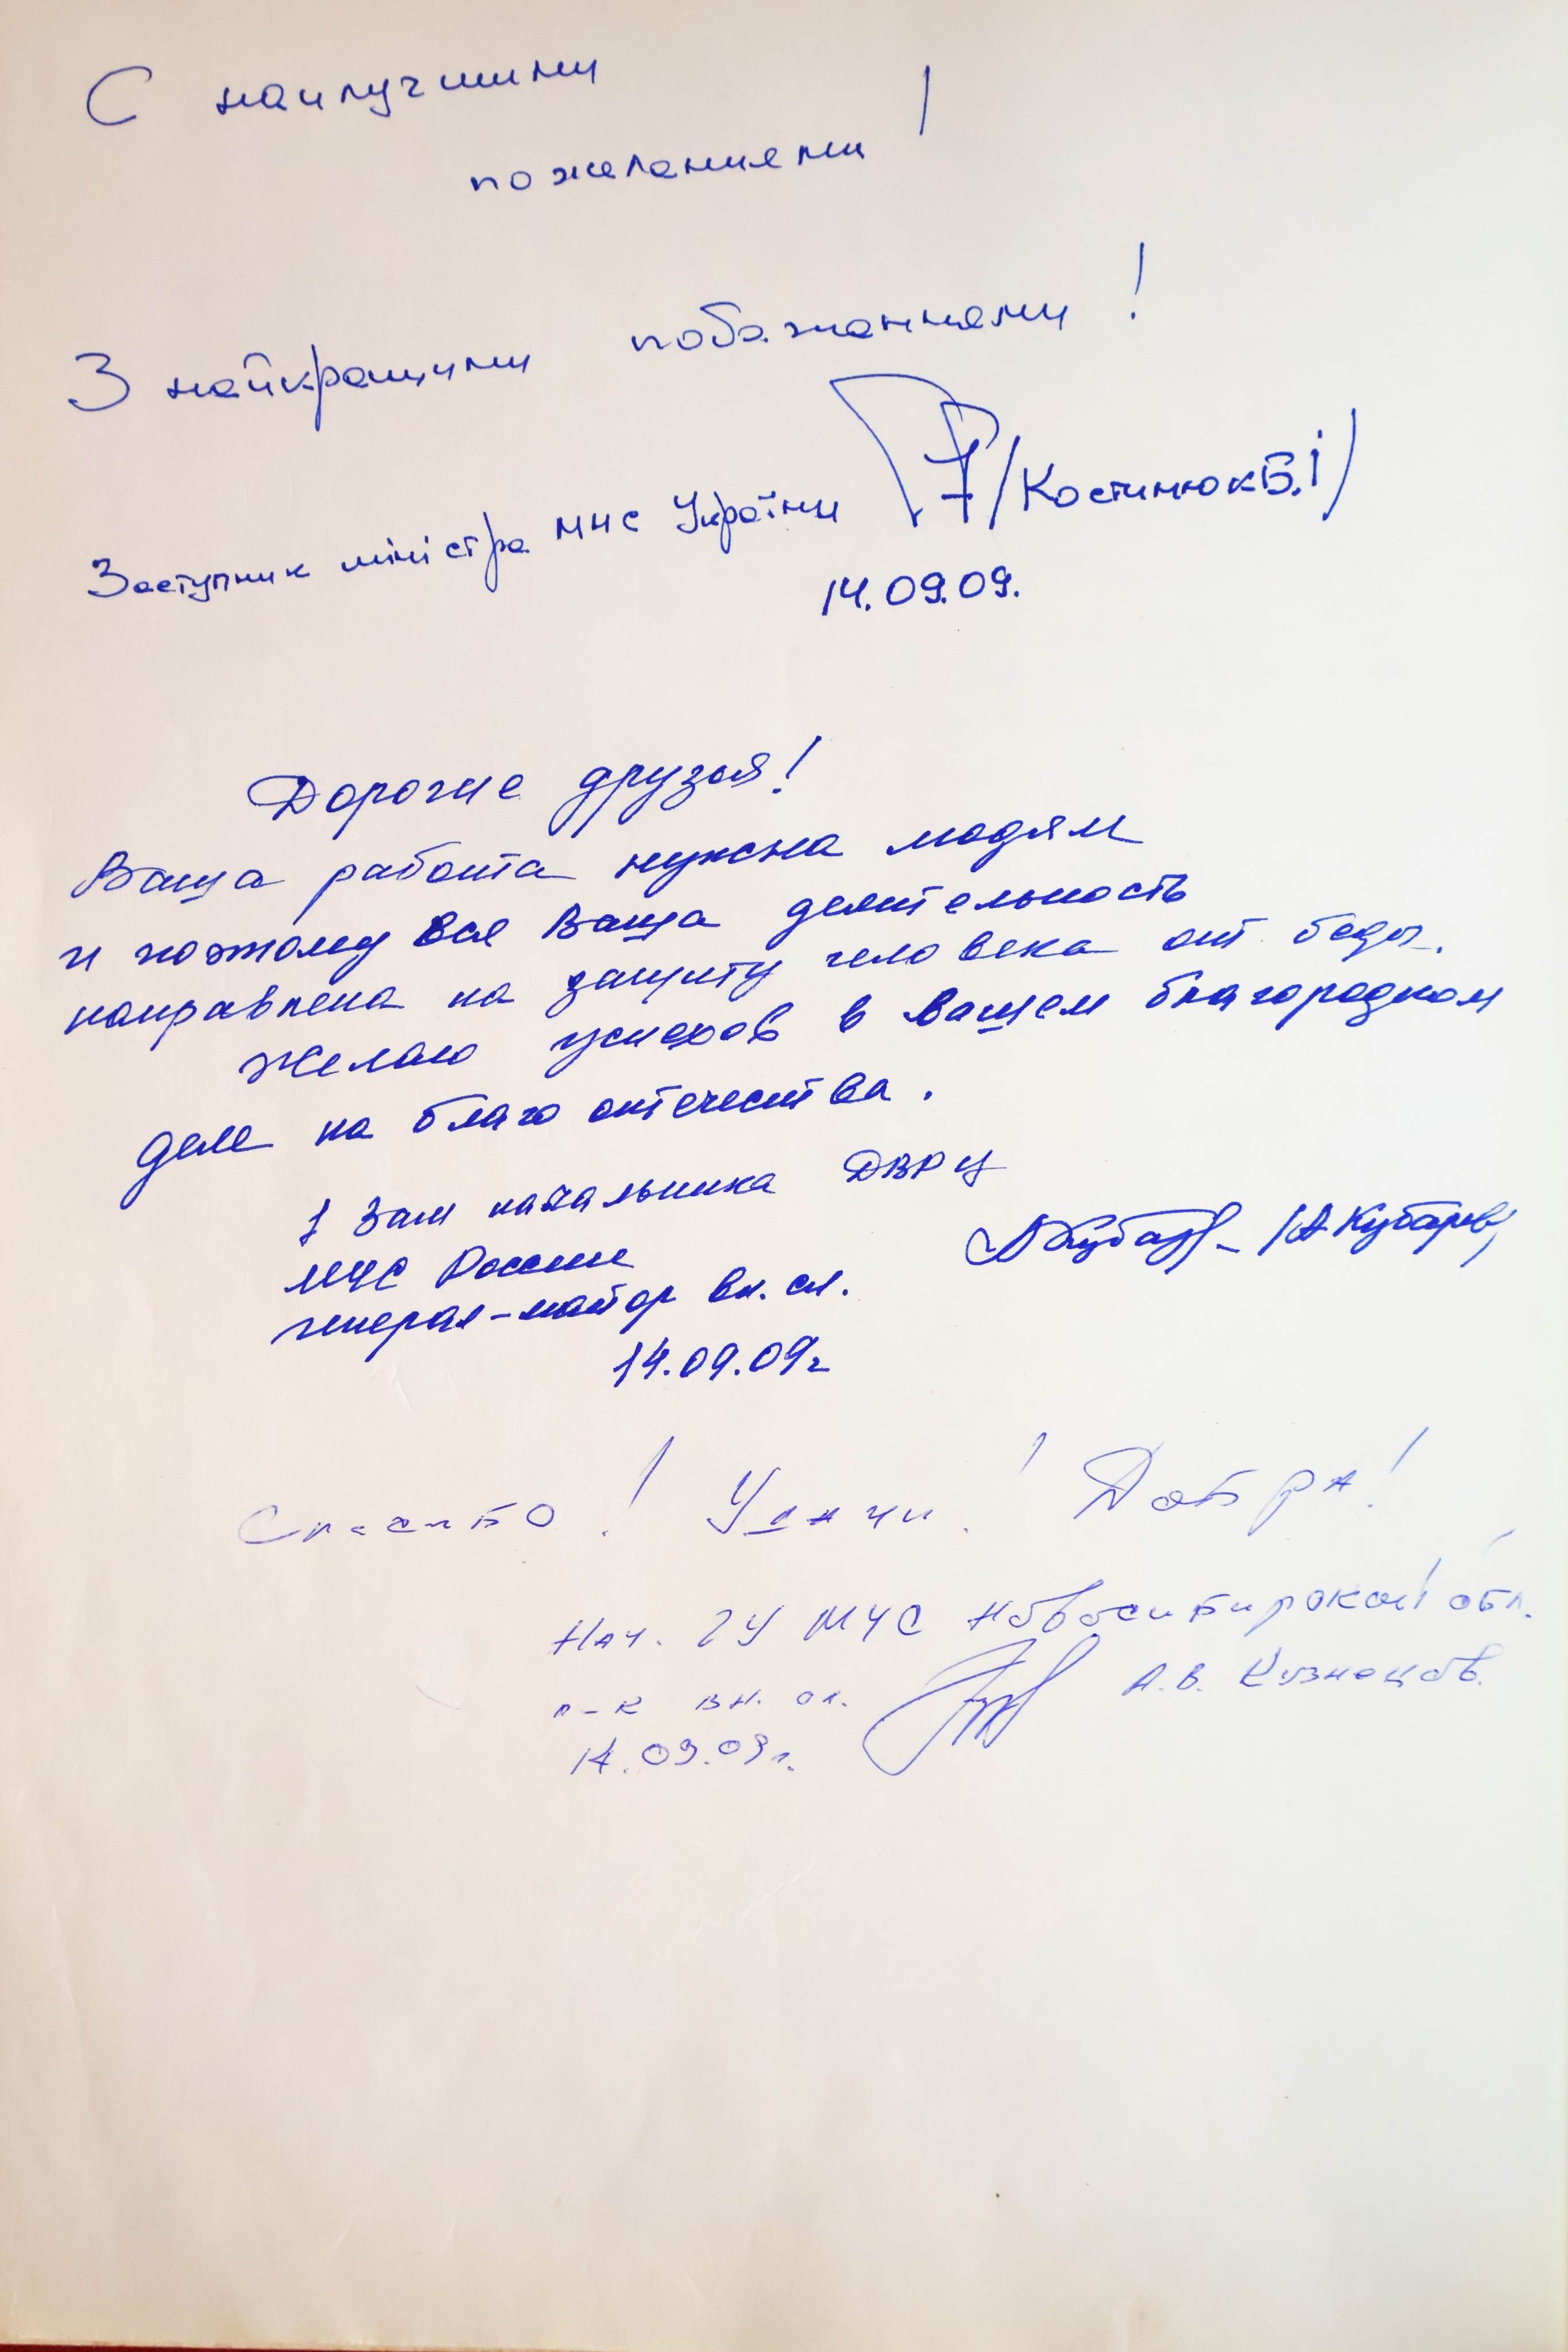 С наилучшими
пожеланиями!
З найкращими побажаннями!
Заступник міністра МНС України /Костинюк Б.І/
14.09.09.
Дорогие друзья!
Ваша работа нужна людям
и поэтому вся Ваша деятельность
направлена на защиту человека от беды.
Желаю успехов в вашем благородном
деле на благо отечества.
1 Зам начальника ДВРЦ
МЧС России
/А Кубарев/
генерал-майор вн. сл.
14.09.09г
Спасибо! Удачи! Добра!
Нач. ГУ МЧС Новосибирской обл.
п-к вн. сл. А.В. Кузнецов.
14.09.09г.